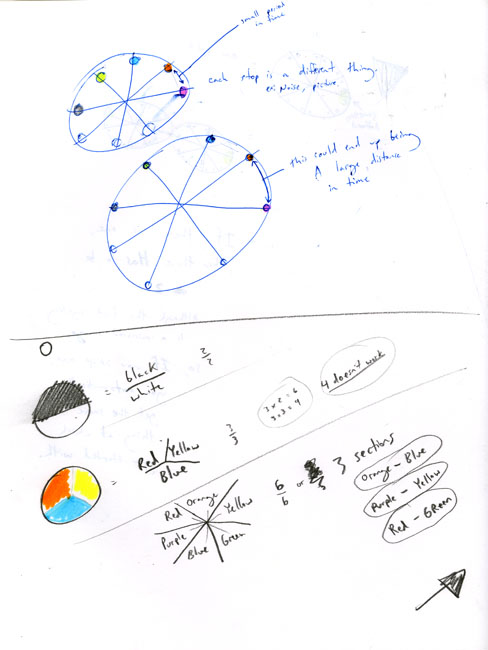 small period
in time
each stop is a different thing.
ex: Noise, picture.
this could end up being
A large distance
in time
= black
white
2/2
3 x 2 = 6
3 + 3 = 9
4 doesn't work
= Red / Yellow
Blue
3/3
6/6 or 3 sections
Orange - Blue
Purple - Yellow
Red - Green
Red Orange Yellow
Purple Blue Green